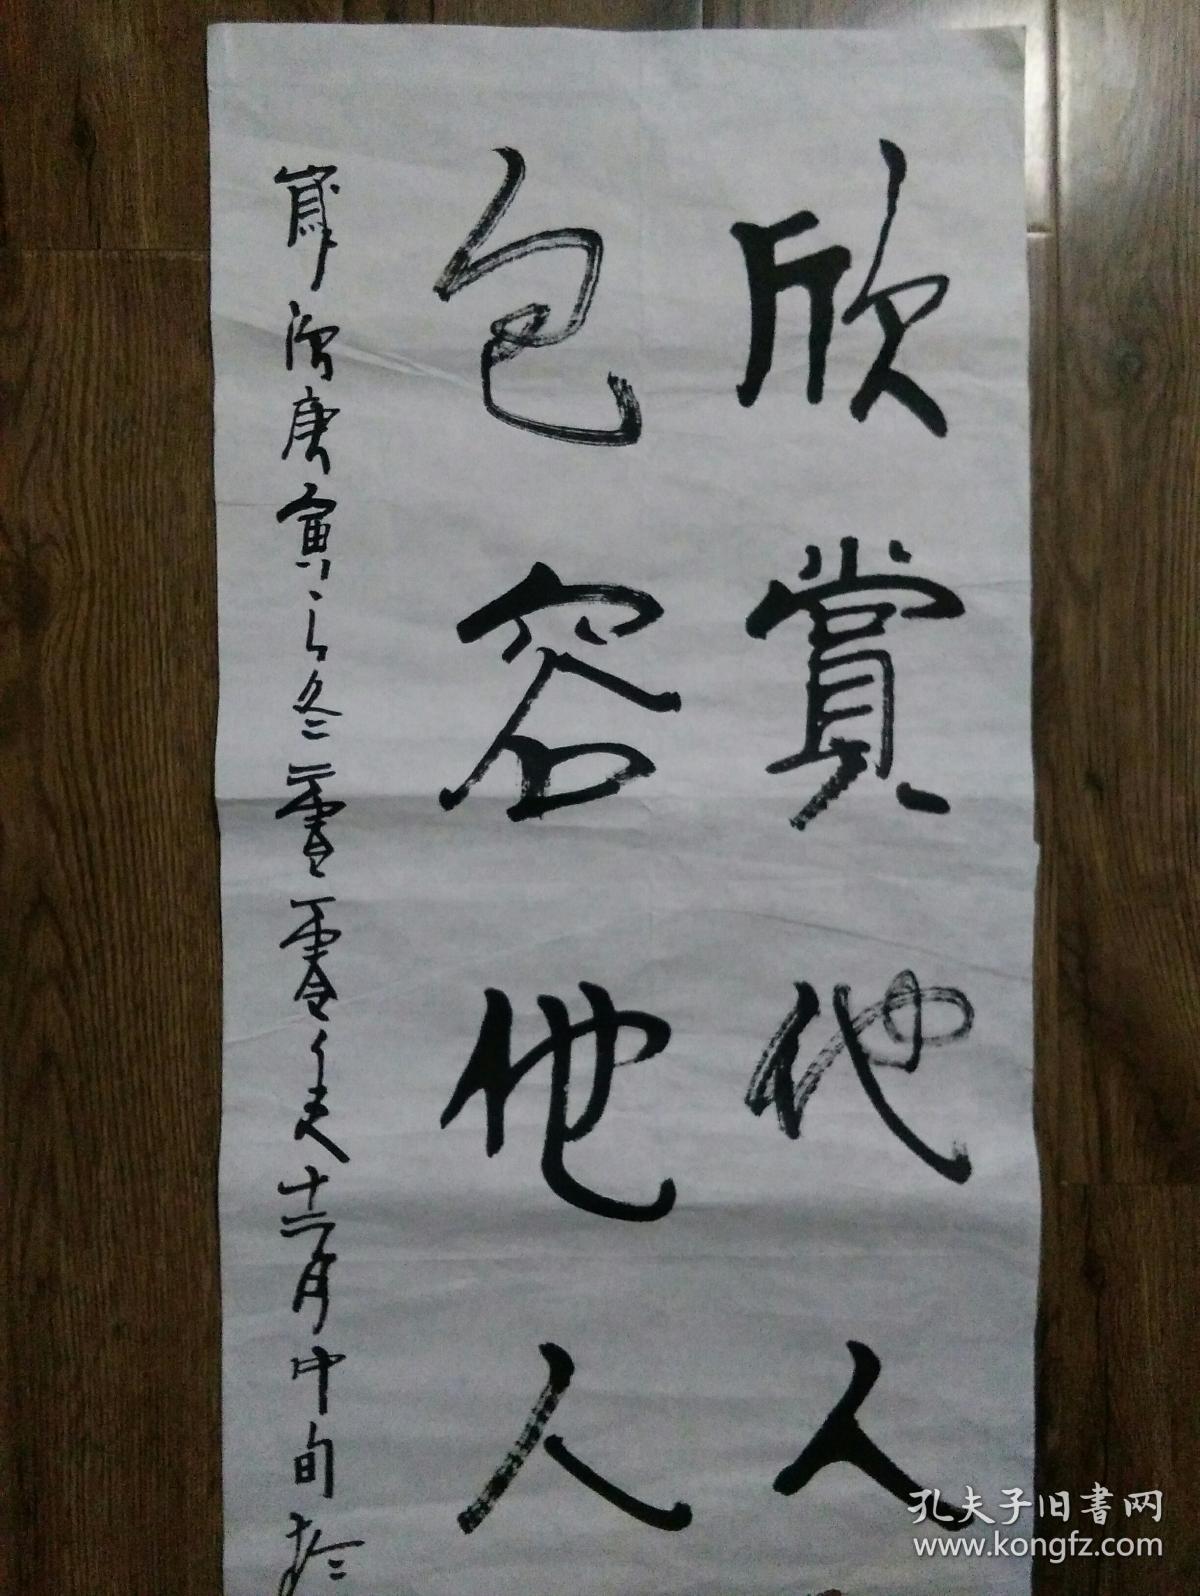 欣赏他人
包容他人
岁次庚寅之冬二零零年十二月中旬于
孔夫子旧書网
www.kongfz.com